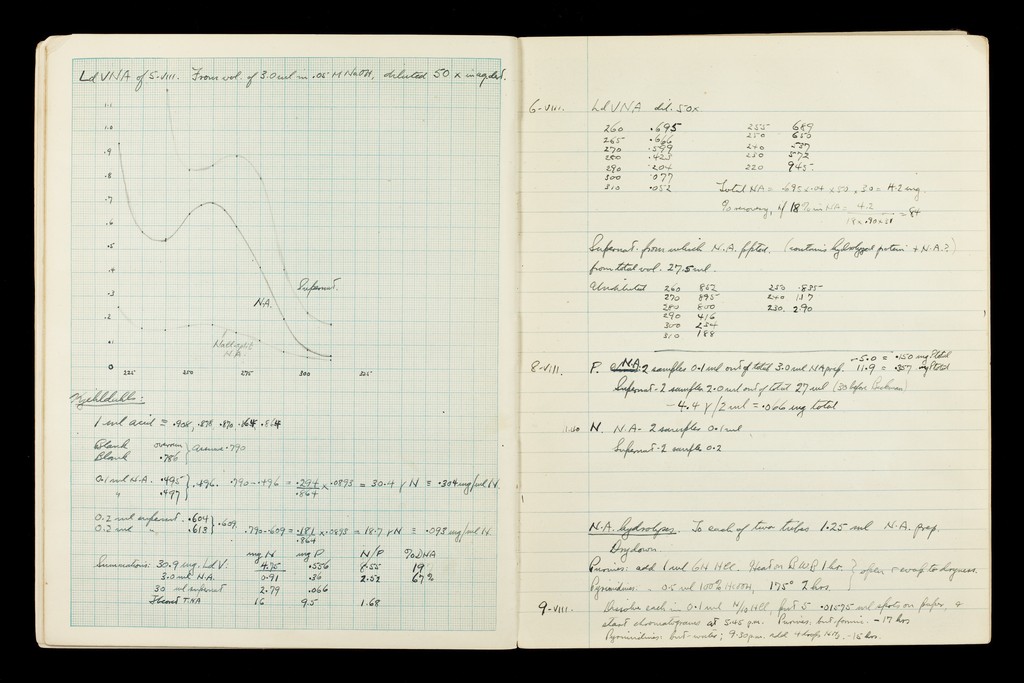 Ld VNA of 5-VIII. From vol. of 3.0 ml in .05 M NaOH, diluted 50 x in aq. dest.
1.1
1.0
.9
.8
.7
.6
.5
.4
.3
.2
.1
0
Supernat.
NA
N.A.
225 250 275 300 325
Kjehldahls:
1 ml acid ≡ .908, .878 .870 .864, .864
Blank overrun } assume .790
Blank .786
0.1 ml N.A. .495 } .496. .790-.496 = .294/.864 x .0893 = 30.4 γ N = .304 mg/ml N.
" .497
0.2 ml supernat. .604 } .609
0.2 ml " .613 .790-.609 = .181/.864 x .0893 = 18.7 γN = .093 mg/ml N.
mg N mg P N/P % DNA
Summations: 30.9 mg. Ld V: 4.75 .556 8.55 19
3.0 ml N.A. 0.91 .36 2.53 67%
30 ml supernat 2.79 .066
TNA 16 9.5 1.68
6-VIII. Ld VNA dil. 50x
260 .695 255 689
265 .666 250 650
270 .599 240
280 .423 230 572
290 .204 220 945
300 .077
310 .052
Total NA = .695 x .04 x 50 x 30 = 4.2 mg.
% recovery, if 18% in NA = 4.2 / 18 x .90 x 31 = 84
Supernat. from which N.A. pptd. (contains hydrolyzed protein + N.A.?)
from total vol. 27.5 ml.
Undiluted 260 862 250 .835
270 895 240 1.37
280 800 230. 2.90
290 616
300 234
310 188
8-VIII. P. N.A. 2 samples 0.1 ml out of total 3.0 ml NA prep. -5.0 = .150 mg P total
11.9 = .357 mg P total
Supernat - 2 samples 2.0 ml out of total 27 ml (30 before Beckman)
- 4.4 γ/2 ml = .066 mg total
N. N.A - 2 samples 0.1 ml
Supernat - 2 sample 0.2
N.A. hydrolyses. To each of two tubes 1.25 ml N.A. prep.
Dry down
Purines: add 1 ml 6N HCl. Heat in BWB 1 hr. } open, & evap to dryness.
Pyrimidines: - 0.5 ml 100% HCOOH, 175° 2 hrs.
9-VIII. Dissolve each in 0.1 ml N/10 HCl, put 5 .01575 ml spots on paper, &
start chromatograms at 5:45 p.m. Purines, but-formic - 17 hrs
Pyrimidines: but-water; 9:30 p.m. add 4 drops NH3 - 16 hrs.